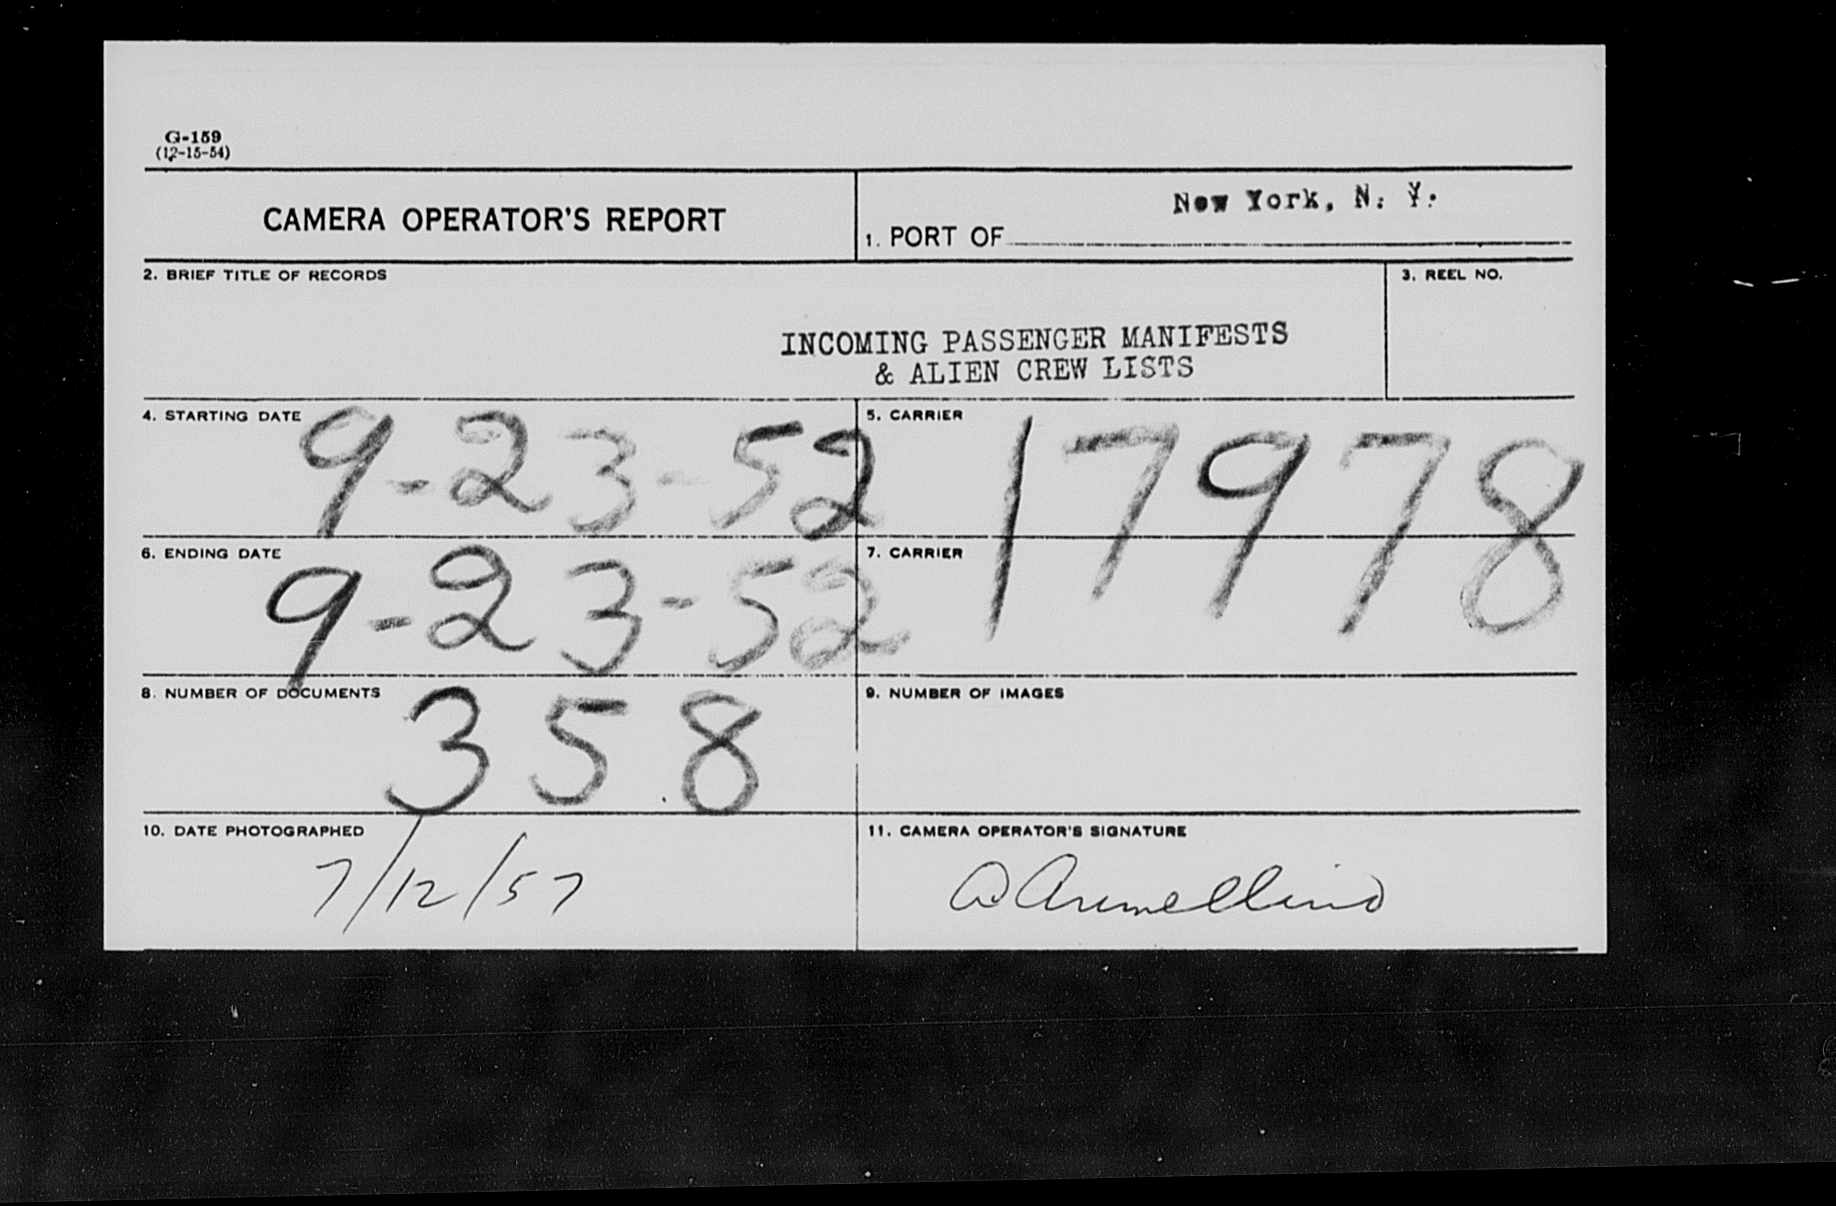 G-159
(12-15-54)
CAMERA OPERATOR'S REPORT
1. PORT OF New York, N. Y.
2. BRIEF TITLE OF RECORDS
3. REEL NO.
INCOMING PASSENGER MANIFESTS
& ALIEN CREW LISTS
4. STARTING DATE 9-23-52
5. CARRIER
17978
6. ENDING DATE 9-23-52
7. CARRIER
8. NUMBER OF DOCUMENTS 358
9. NUMBER OF IMAGES
10. DATE PHOTOGRAPHED 7/12/57
11. CAMERA OPERATOR'S SIGNATURE